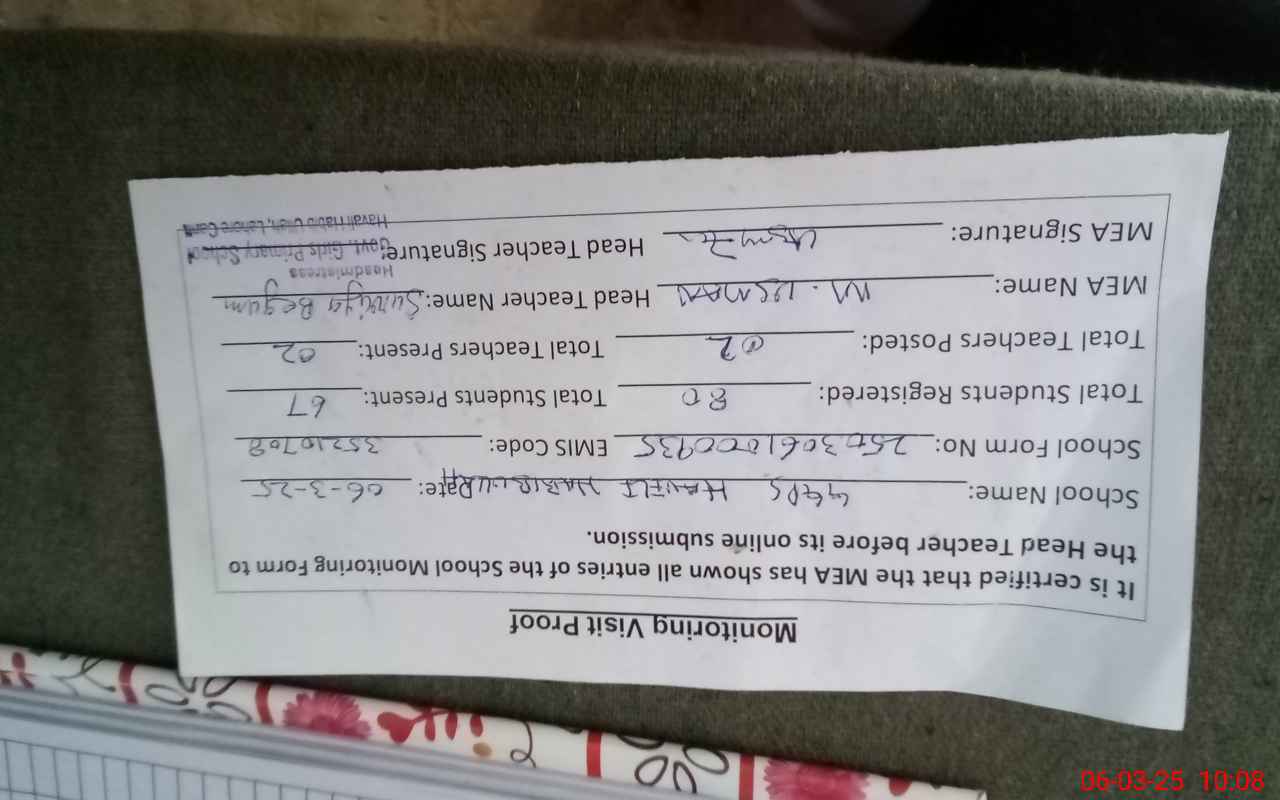 Monitoring Visit Proof
It is certified that the MEA has shown all entries of the School Monitoring Form to
the Head Teacher before its online submission.
School Name: GGPS HAVELI HABIB ULLAH Date: 06-3-25
School Form No: 250306100935 EMIS Code: 35210708
Total Students Registered: 80 Total Students Present: 67
Total Teachers Posted: 02 Total Teachers Present: 02
MEA Name: M. USMAN Head Teacher Name: Surriya Begum
MEA Signature: Head Teacher Signature:
Headmistress
Govt. Girls Primary School
Havali Habib Ullah, Lahore Cantt
06-03-25 10:08